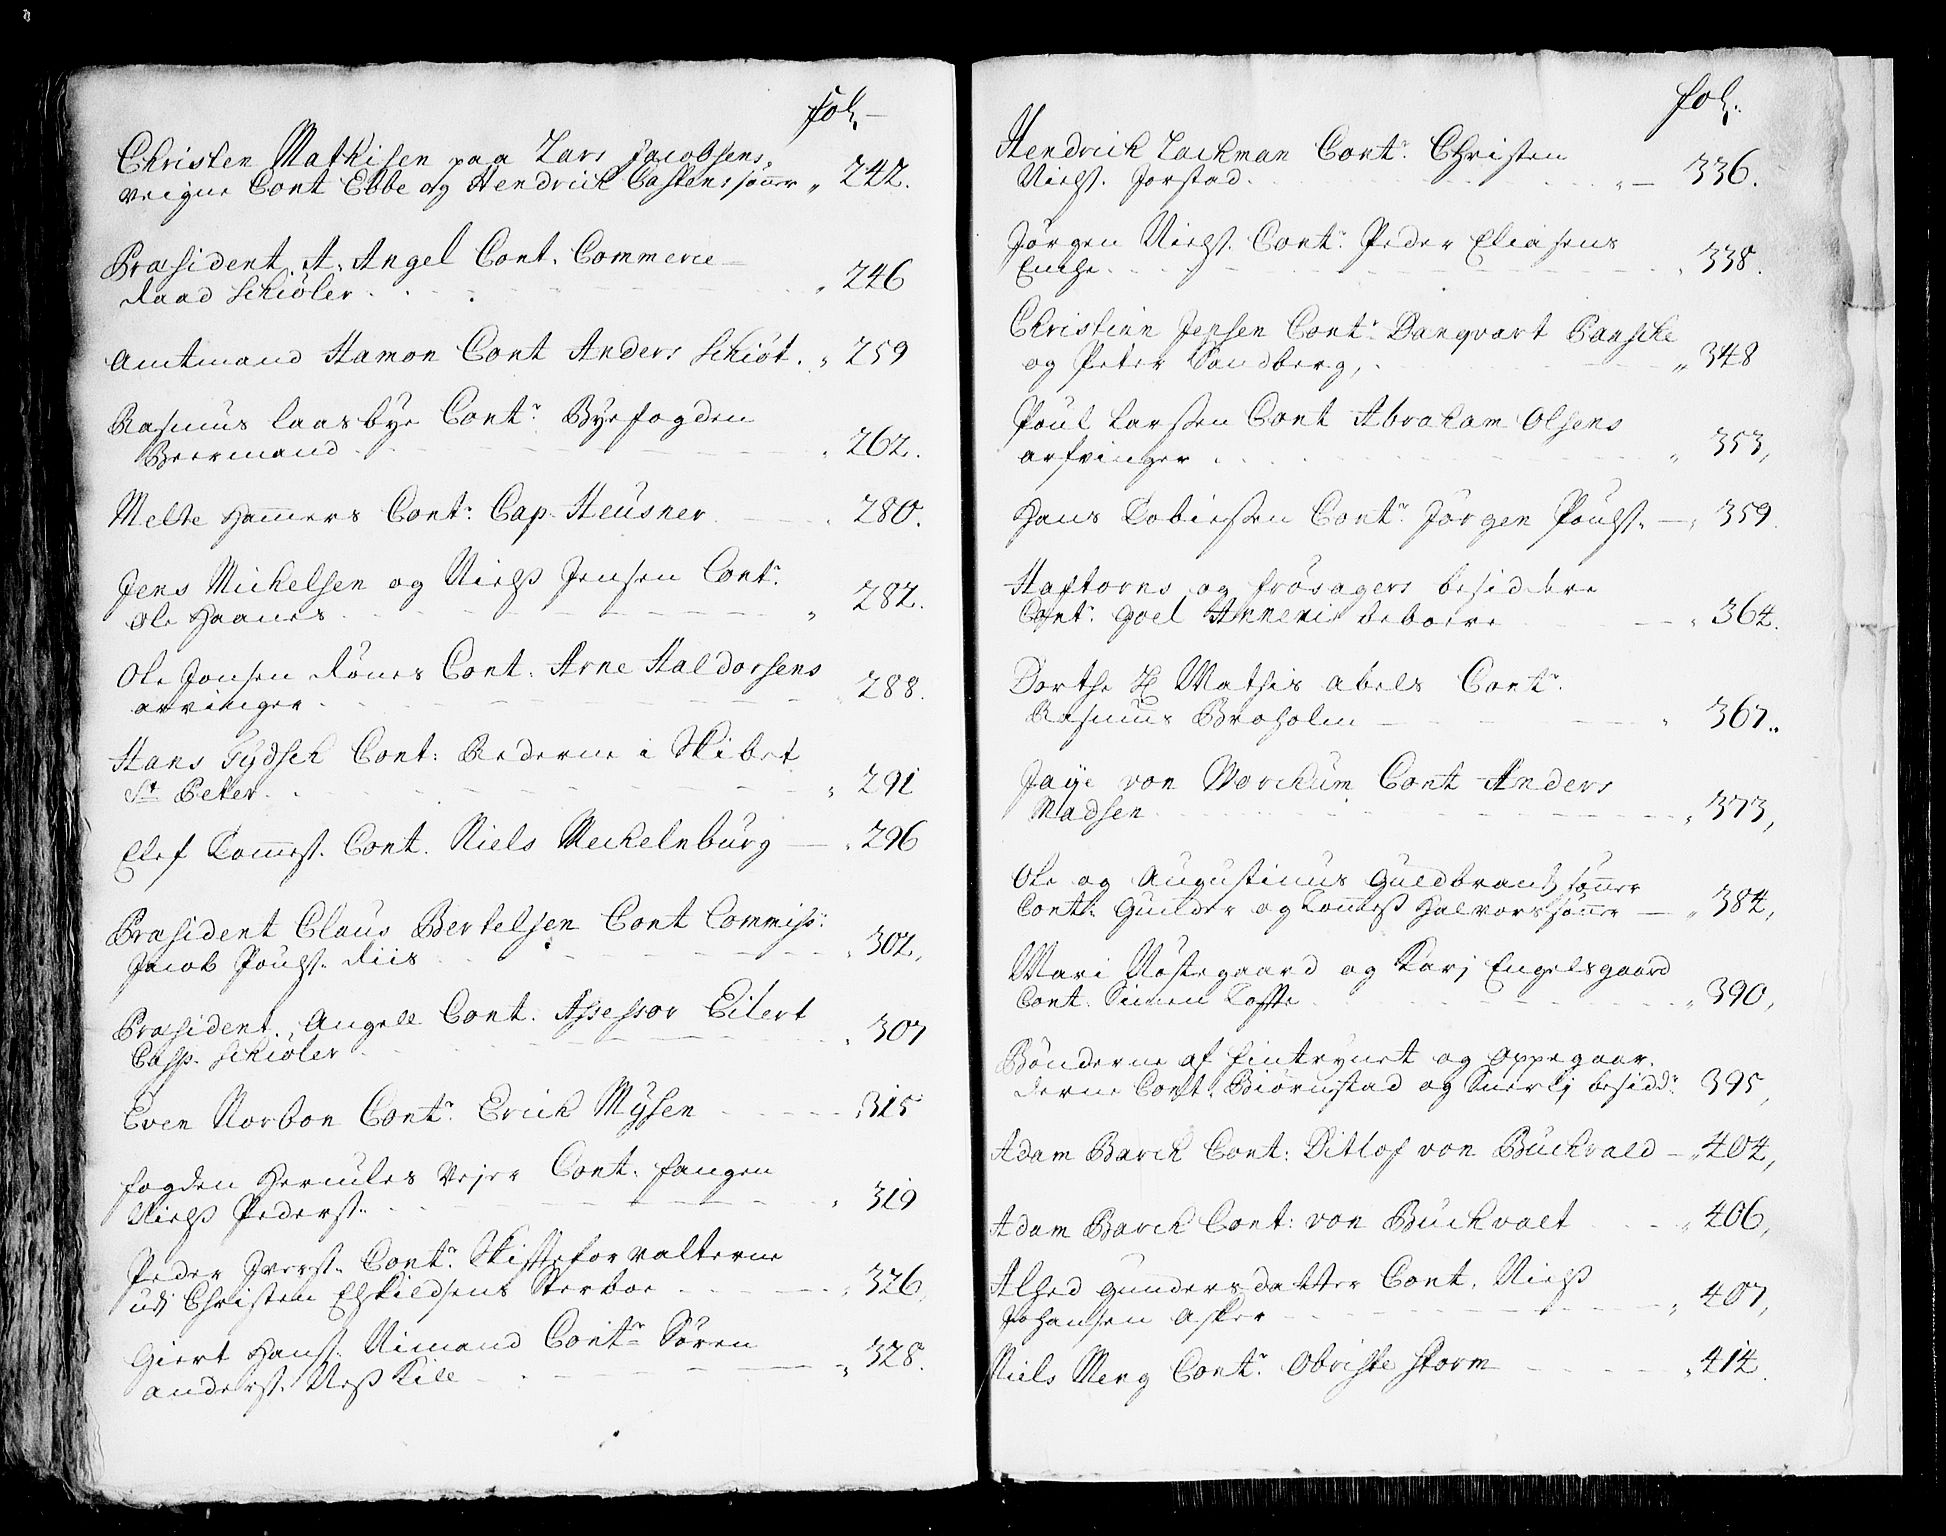 fol.
Christen Mathisen paa Lars Jacobsens
veigne Cont Ebbe og Hendrich Castenssønner 242.
Præsident A. Angel Cont. Commerce
Raad Schiøler 246
Amtmand Hamon Cont Anders Schiøt. 259
Rasmus Laasbye Contr. Byefogden
Beermand 262.
Melte Hammers Contr. Cap. Heusner 280.
Jens Michelsen og Niels Jensen Contr.
Ole Haanes 282.
Ole Jonsen Rønes Cont. Arne Haldorsens
arvinger 288.
Hans Tydsch Cont: Rederne i Skibet
St. Peter 291
Elef Tommes. Cont. Niels Mechelnburg 296
Præsident Claus Bertelsen Cont Commiss:
Jacob Pouls. Riis 302.
Præsident Angell Cont. Assessor Eilert
Casp. Schiøler 307
Even Norbon Contr. Erich Mysen 315
fogden Hercules Vejer Cont. fangen
Niels Peders. 319
Peder Ivers. Contr. Skifteforvalterne
udj Christen Eskildsens Sterboe 326
Giert Hans. Nimand Contr. Søren
Anders. Næskile 328.
fol.
Hendrich Lachman Contr. Christen
Niels. Jorstad 336.
Jørgen Niels. Contr. Peder Eliasens
Enche 338.
Christian Jensen Contr. Danqvart Panske
og Peter Sandberg, 348
Poul Larsen Cont Abraham Olsens
arfvinger 353,
Hans Tobiesen Contr. Jørgen Pouls. 359.
Haftorns og frøsagers besiddere
Contr. Goel Anneris deboere 364.
Dorthe H Mathis Abels Contr.
Rasmus Broholm 367.
Jaye von Worckum Cont Anders
Madsen 373,
Ole og Augustinus Guldbrandssønner
Contr. Gunder og Tommes Halvorssønner 384,
Mari Nøstegaard og Karj Engelsgaard
Cont. Simen Tofte 390,
Bønderne af fintrynet og Oppegaar-
derne Cont. Biørnstad og Snerlj besidd. 395,
Adam Barch Cont: Ditlof von Buchvald 404,
Adam Barch Cont: von Buchvalt 406,
Alhed Gundersdatter Cont. Niels
Johansen Asker 407,
Niels Meng Contr. Obriste Storm 414.